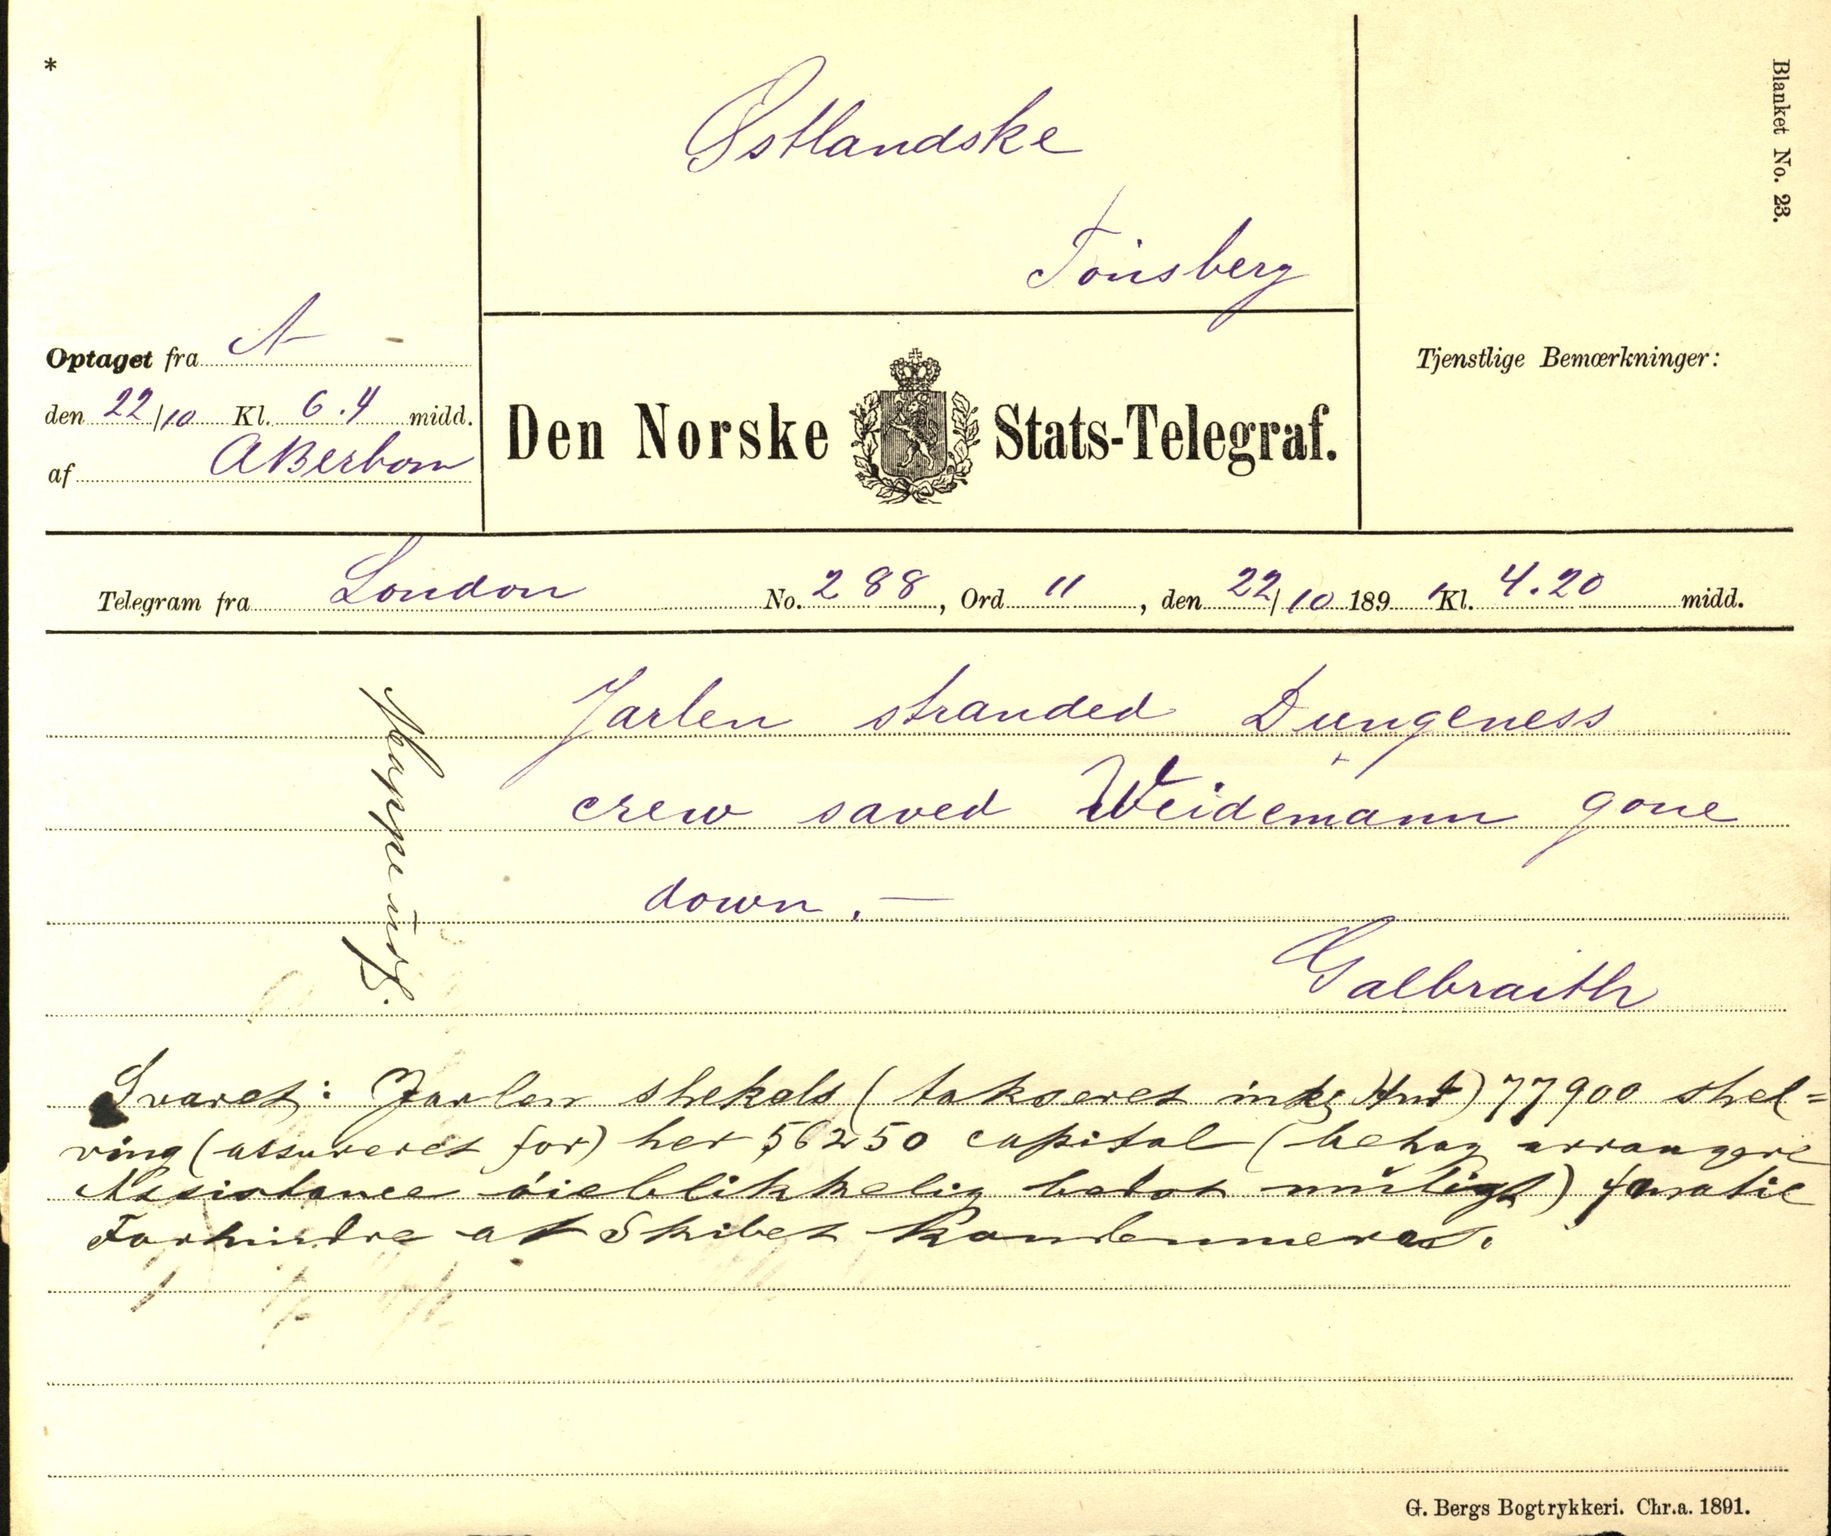 *
Blanket No. 23.
Østlandske
Tönsberg
Optaget fra A
den 22/10 Kl. 6.4 midd.
af
Den Norske Stats-Telegraf.
Tjenstlige Bemærkninger:
Telegram fra London No. 288, Ord 11, den 22/10 1891 Kl. 4.20 midd.
Jarlen stranded Dungeness
crew saved Weidemann gone
down. —
Galbraith
Svaret: Jarlen shekels (takseret 77900 shel=
ving (assureret for) her 56250 capital (behag arrangere
Assistance øieblikkelig hvis muligt) fanatic
Forhindre at Skibet kondemneres.
G. Bergs Bogtrykkeri. Chr.a. 1891.